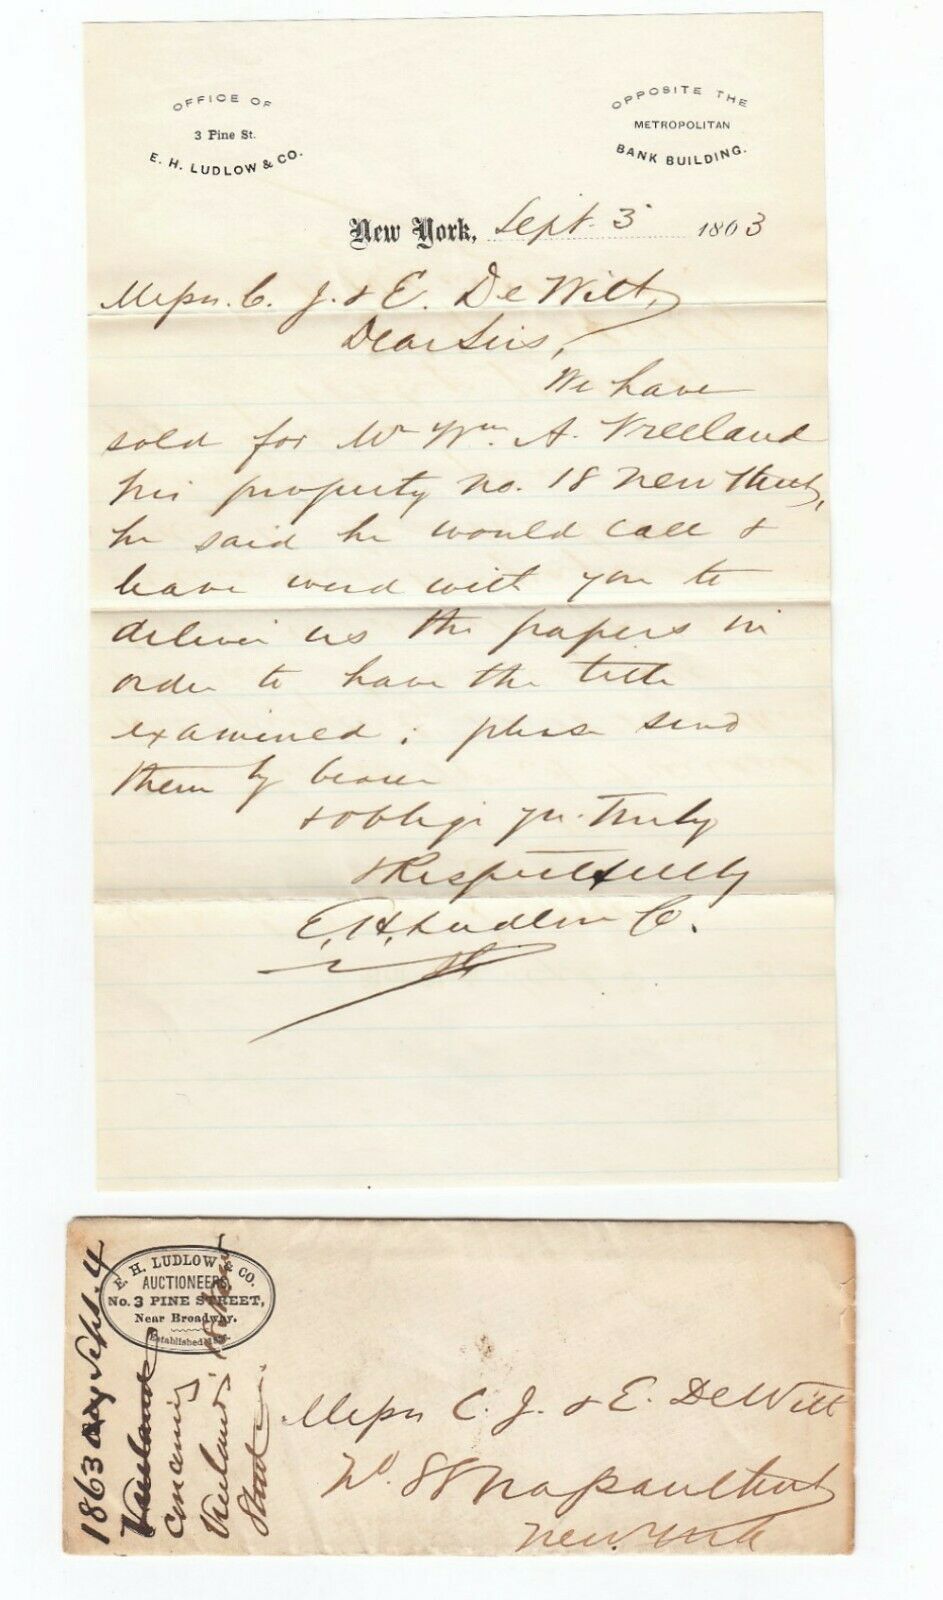 OFFICE OF
3 Pine St.
E. H. LUDLOW & CO.
OPPOSITE THE
METROPOLITAN
BANK BUILDING.
New York, Sept. 3 1863
Messrs. C. J. & E. De Witt,
Dear Sirs,
We have
sold for Mr Wm. A. Vreeland
his property No. 18 New Street,
he said he would call &
leave word with you to
deliver us the papers in
order to have the title
examined; please send
them by bearer
& oblige yrs. truly
& Respectfully
E. H. Ludlow Co.
E. H. LUDLOW & CO.
AUCTIONEERS
No. 3 PINE STREET,
Near Broadway.
Established
1863 Sept. 4
Vreeland
Concerning
Vreeland 18 New
Street
Messrs C. J. & E. De Witt
No 88 Nassau Street
New York